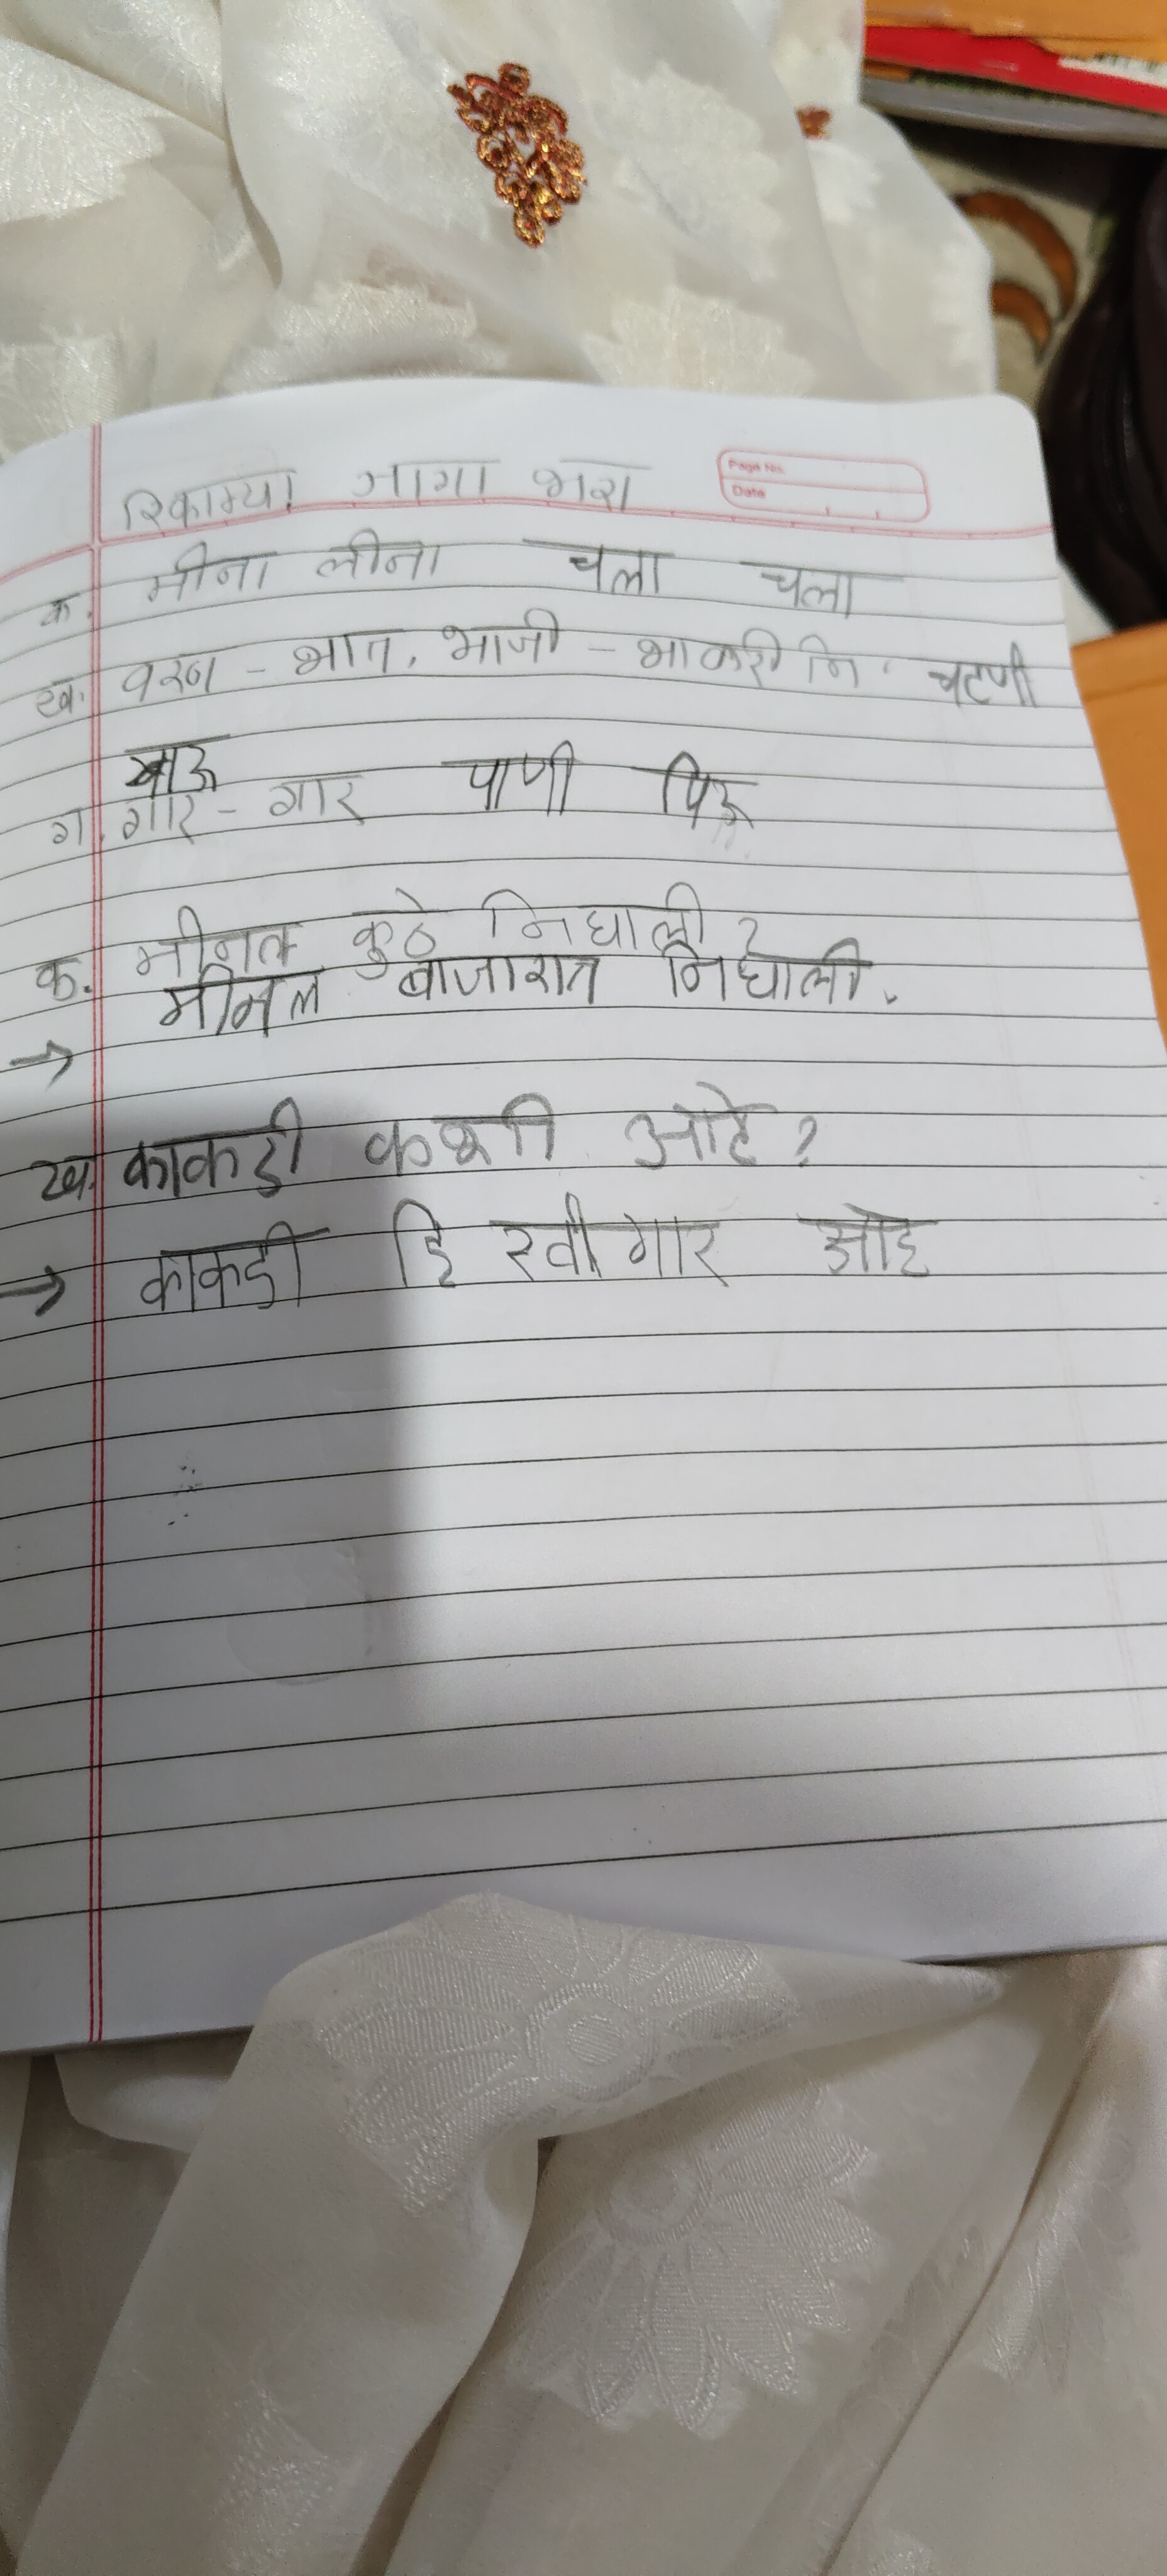 रिकाम्या जागा भरा
Page No.
Date
क. मीना लीना चला चला
ख. वरण - भात, भाजी - भाकरी नि चटणी
खाऊ
ग. गार - गार पाणी पिऊ
क. मीनल कुठे निघाली?
→ मीनल बाजारात निघाली.
ख. काकडी कशी आहे?
→ काकडी हि रवीगार आहे